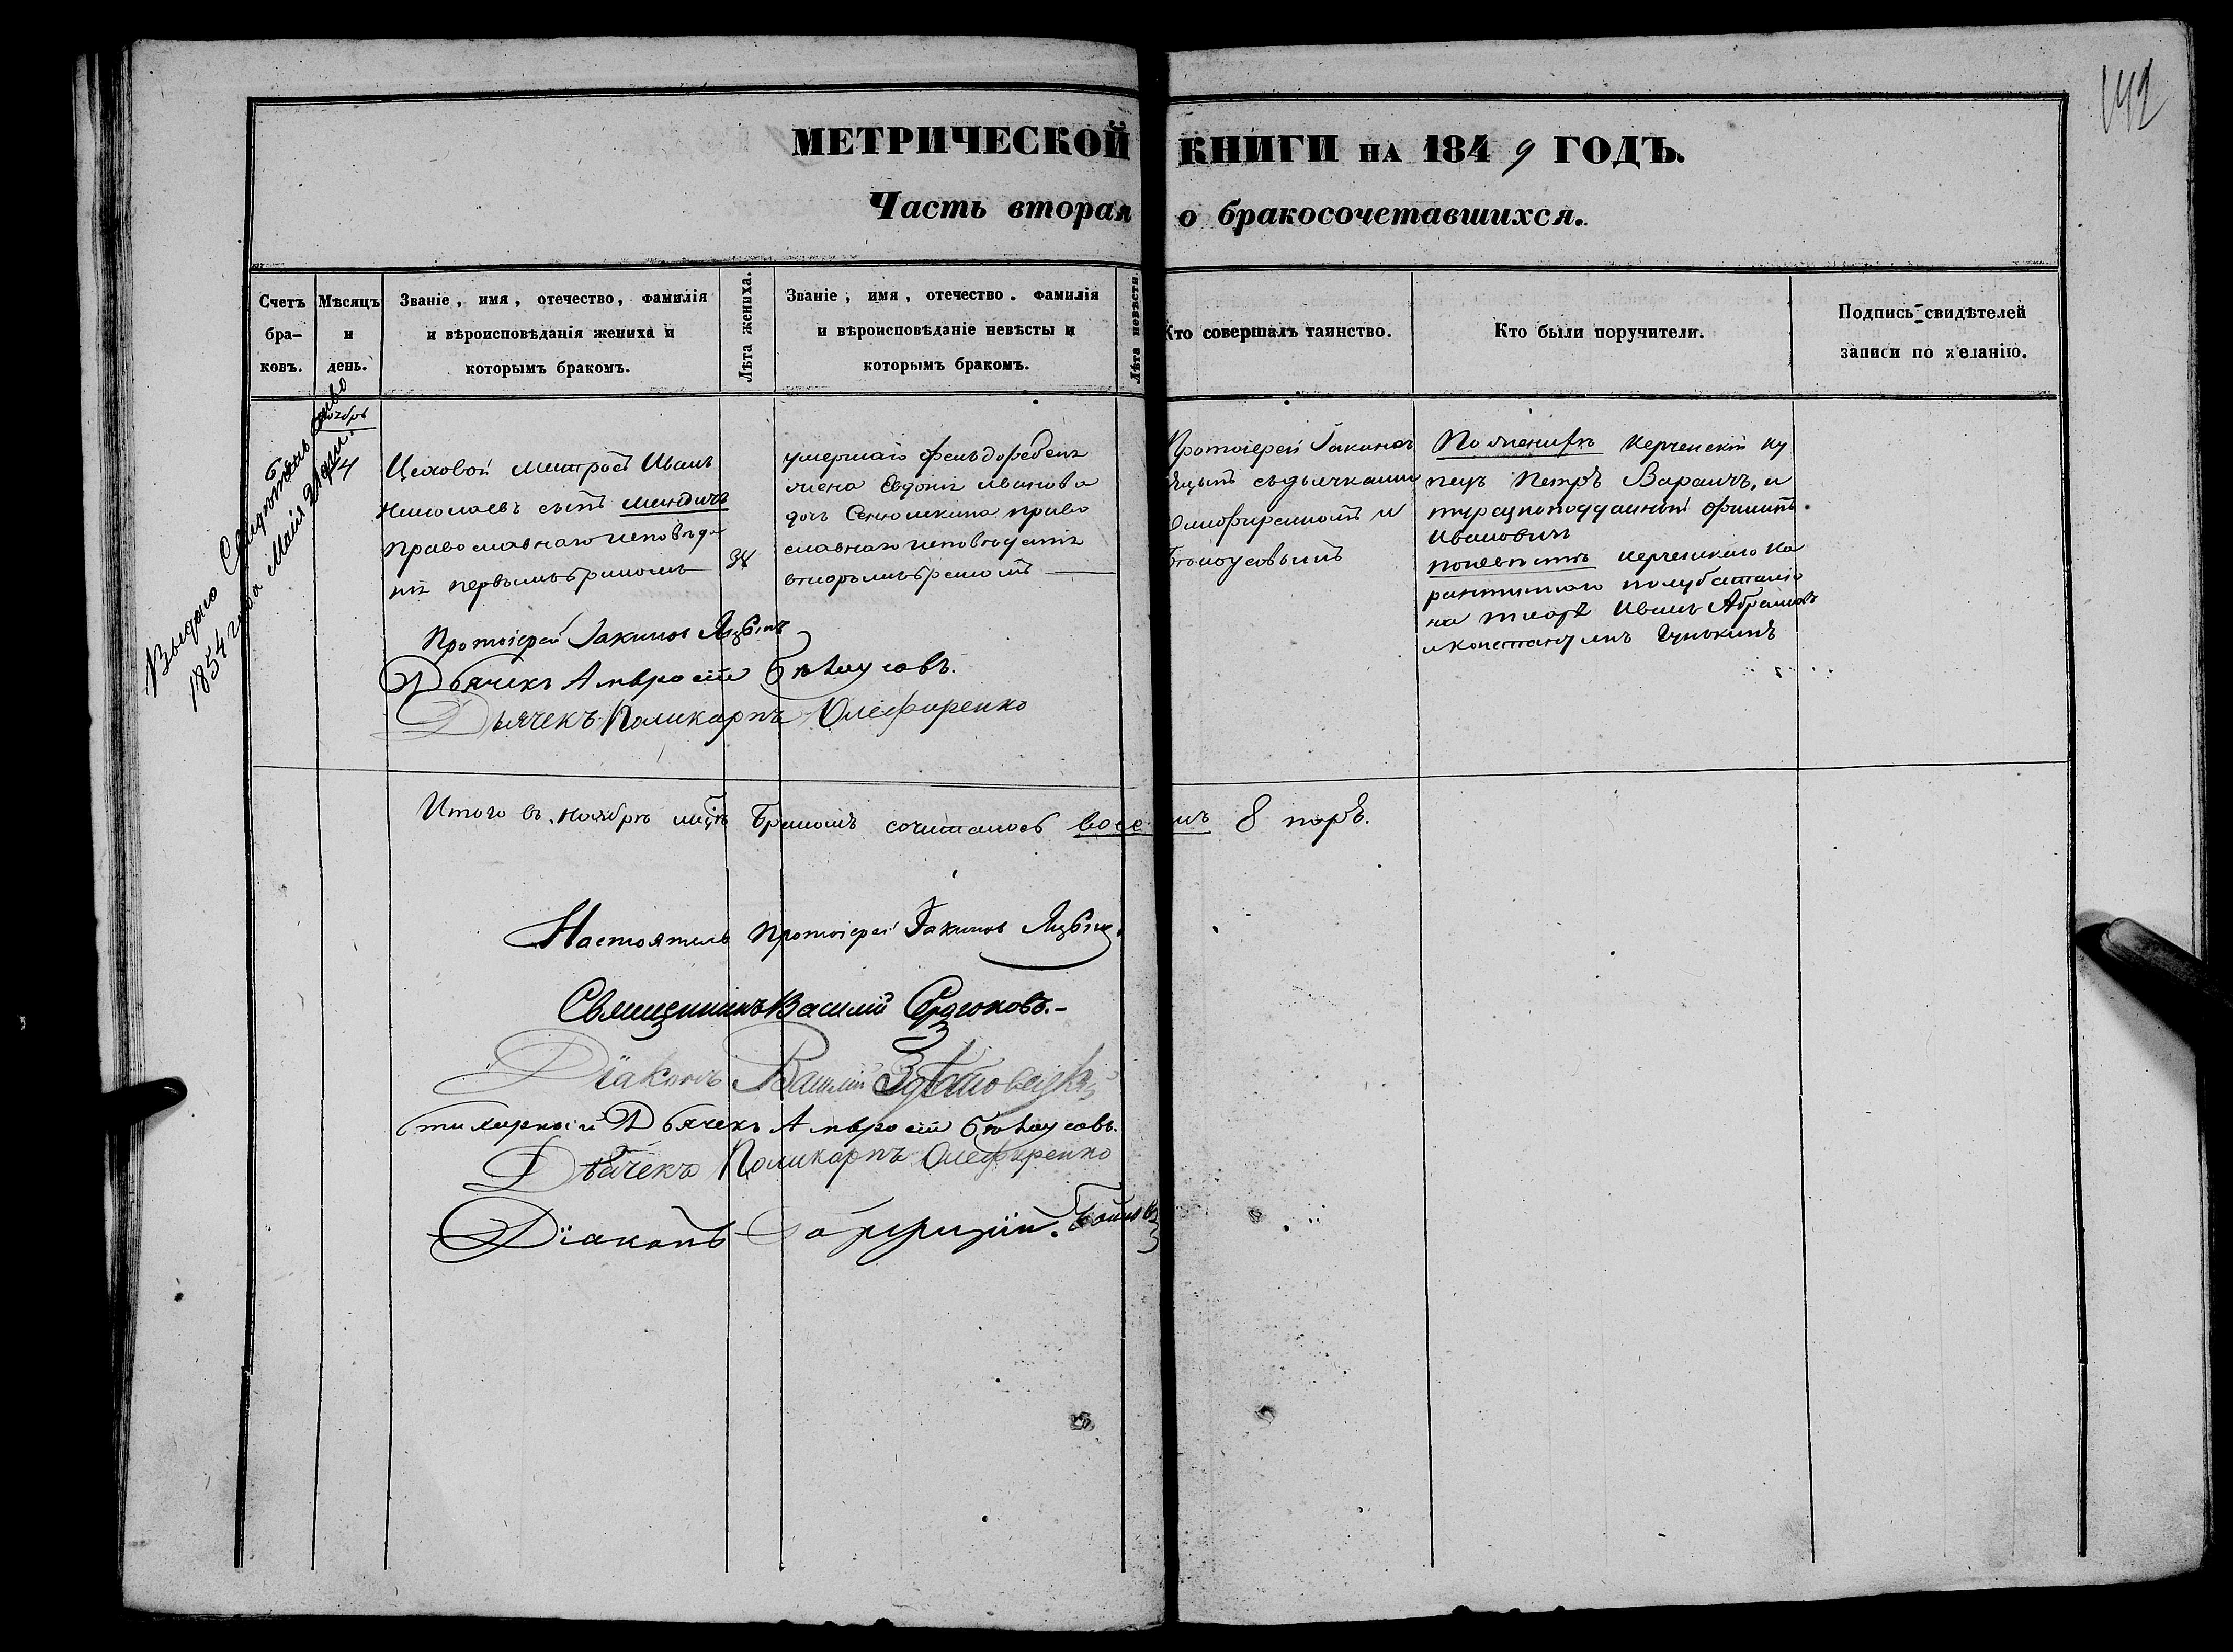 142
МЕТРИЧЕСКОЙ КНИГИ НА 1849 ГОДЪ.
Часть вторая о бракосочетавшихся.
Счетъ бра-ковъ.
Мѣсяцъ и день.
Званіе, имя, отечество, фамилія
и вѣроисповѣданія жениха и
которымъ бракомъ.
Лѣта жениха.
Званіе, имя, отечество. фамилія
и вѣроисповѣданіе невѣсты и
которымъ бракомъ.
Лѣта невѣсты
Кто совершалъ таинство.
Кто были поручители.
Подпись свидѣтелей
записи по желанію.
Выдано Свидѣтельство
1854 года Маія 21 дня.
Цеховой Митрофъ Иванъ
Николаевъ сынъ
православнаго исповѣда
нія первымъ бракомъ
38
умершаго
жена Евдокія Иванова
дочь Сенюткина право
славнаго исповѣданія
вторымъ бракомъ
Протоіерей Іакинѳъ
Яцынъ съ дьячками
Олефиренкомъ и
Бѣлоусовымъ
По женихѣ Керченскій ку
пецъ Петръ Вараичъ, и
турецкоподданный Филипъ
Ивановичъ
по невѣстѣ керченскаго ка
рантиннаго полубаталіо
на Иванъ Абрамовъ
и Константинъ Гунькинъ
Протоіерей Іакинѳъ Яцынъ
Дьячекъ Амвросій Бѣлоусовъ.
Дьячекъ Поликарпъ Олефиренко
Итого въ Ноябрѣ мцѣ бракомъ сочиталось восемь 8 паръ.
Настоятель Протоіерей Іакинѳъ Яцынъ.
Священникъ Василій Сердюковъ.-
Діаконъ Василій
Стихарный Дьячекъ Амвросій Бѣлоусовъ.
Дьячекъ Поликарпъ Олефиренко
Діаконъ